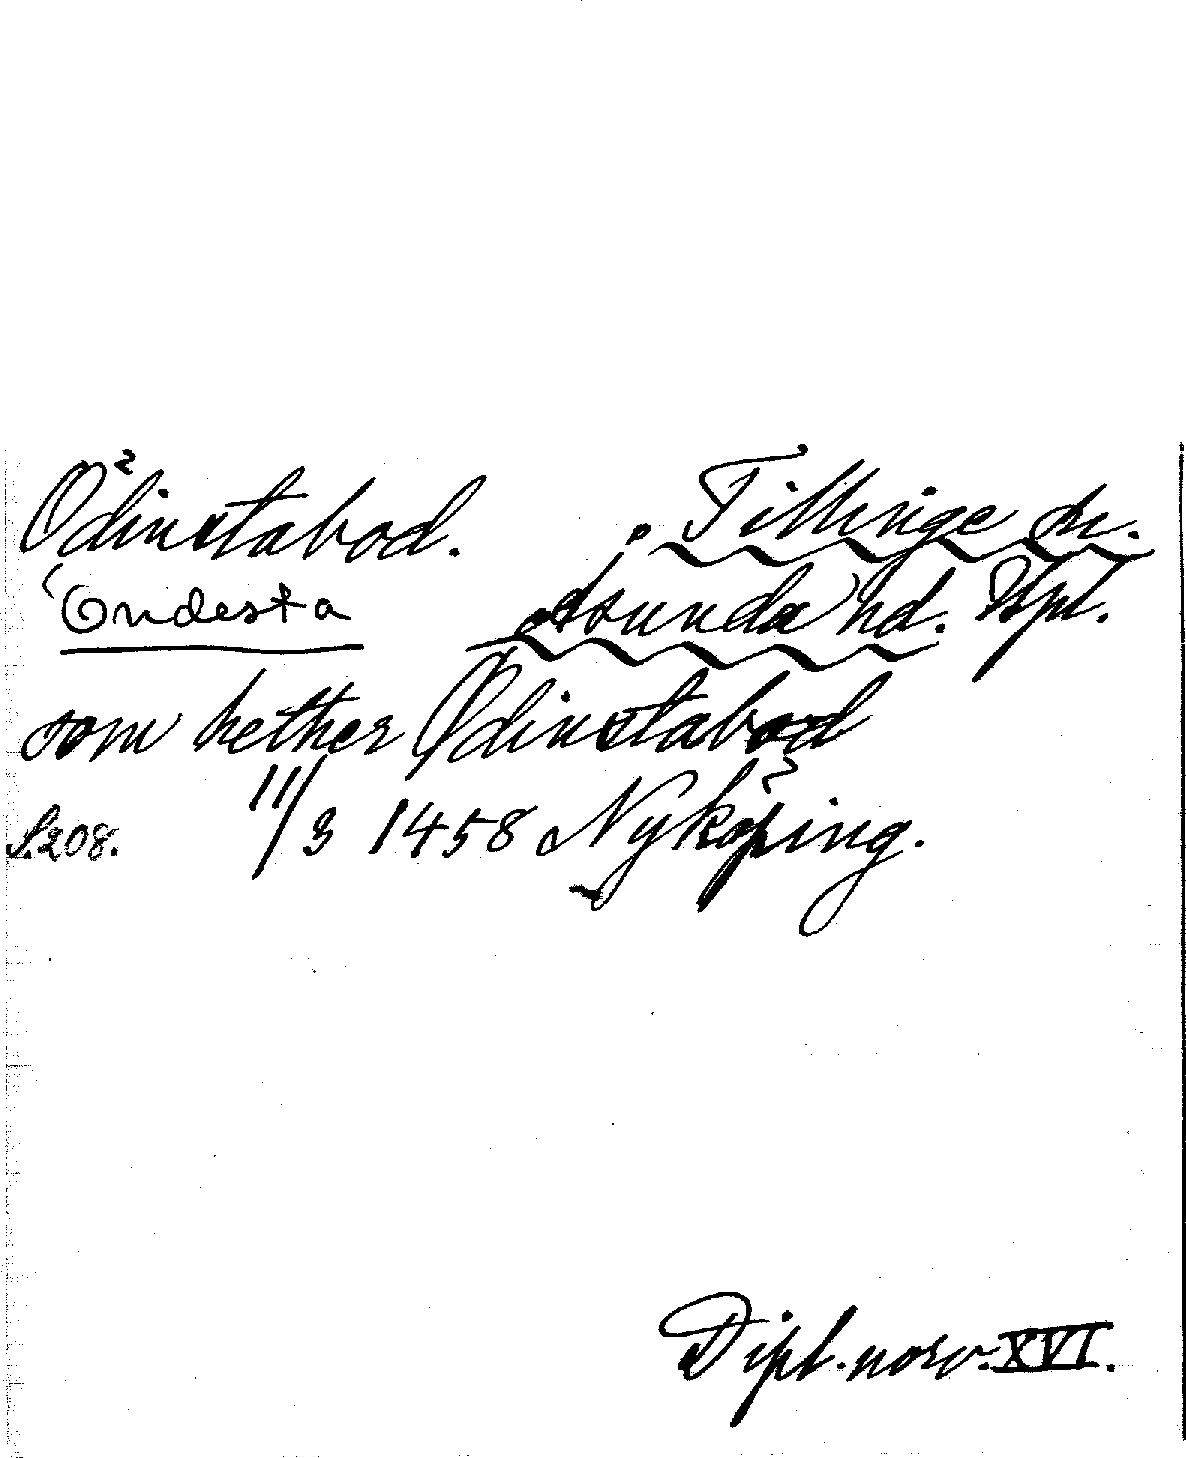 Ödinstabod. Tillinge sn.
Öndesta Åsunda hd. Upl.
som hether Ødinstabod
S. 208. 11/3 1458 Nyköping.
Dipl. norv. XVI.